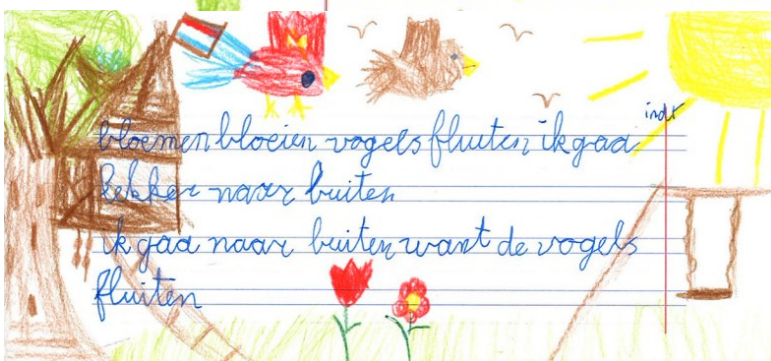 bloemen bloeien vogels fluiten ik gaa
lekker naar buiten
ik gaa naar buiten want de vogels
fluiten